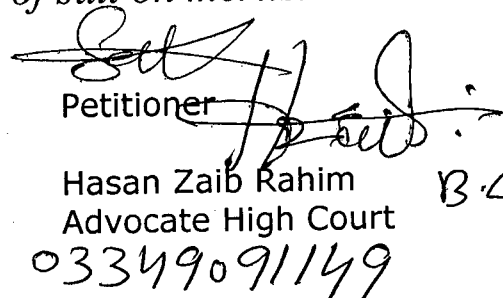 Petitioner
Hasan Zaib Rahim
B.C
Advocate High Court
03349091149